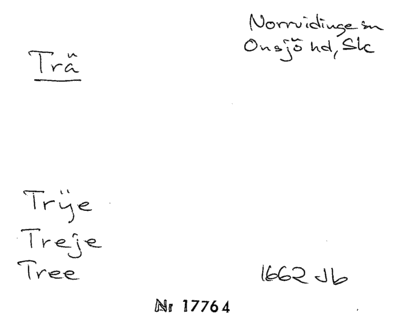 Norrvidinge sn
Onsjö hd, Sk
Trä
Trÿe
Treje
Tree
1662 Jb
Nr 17764